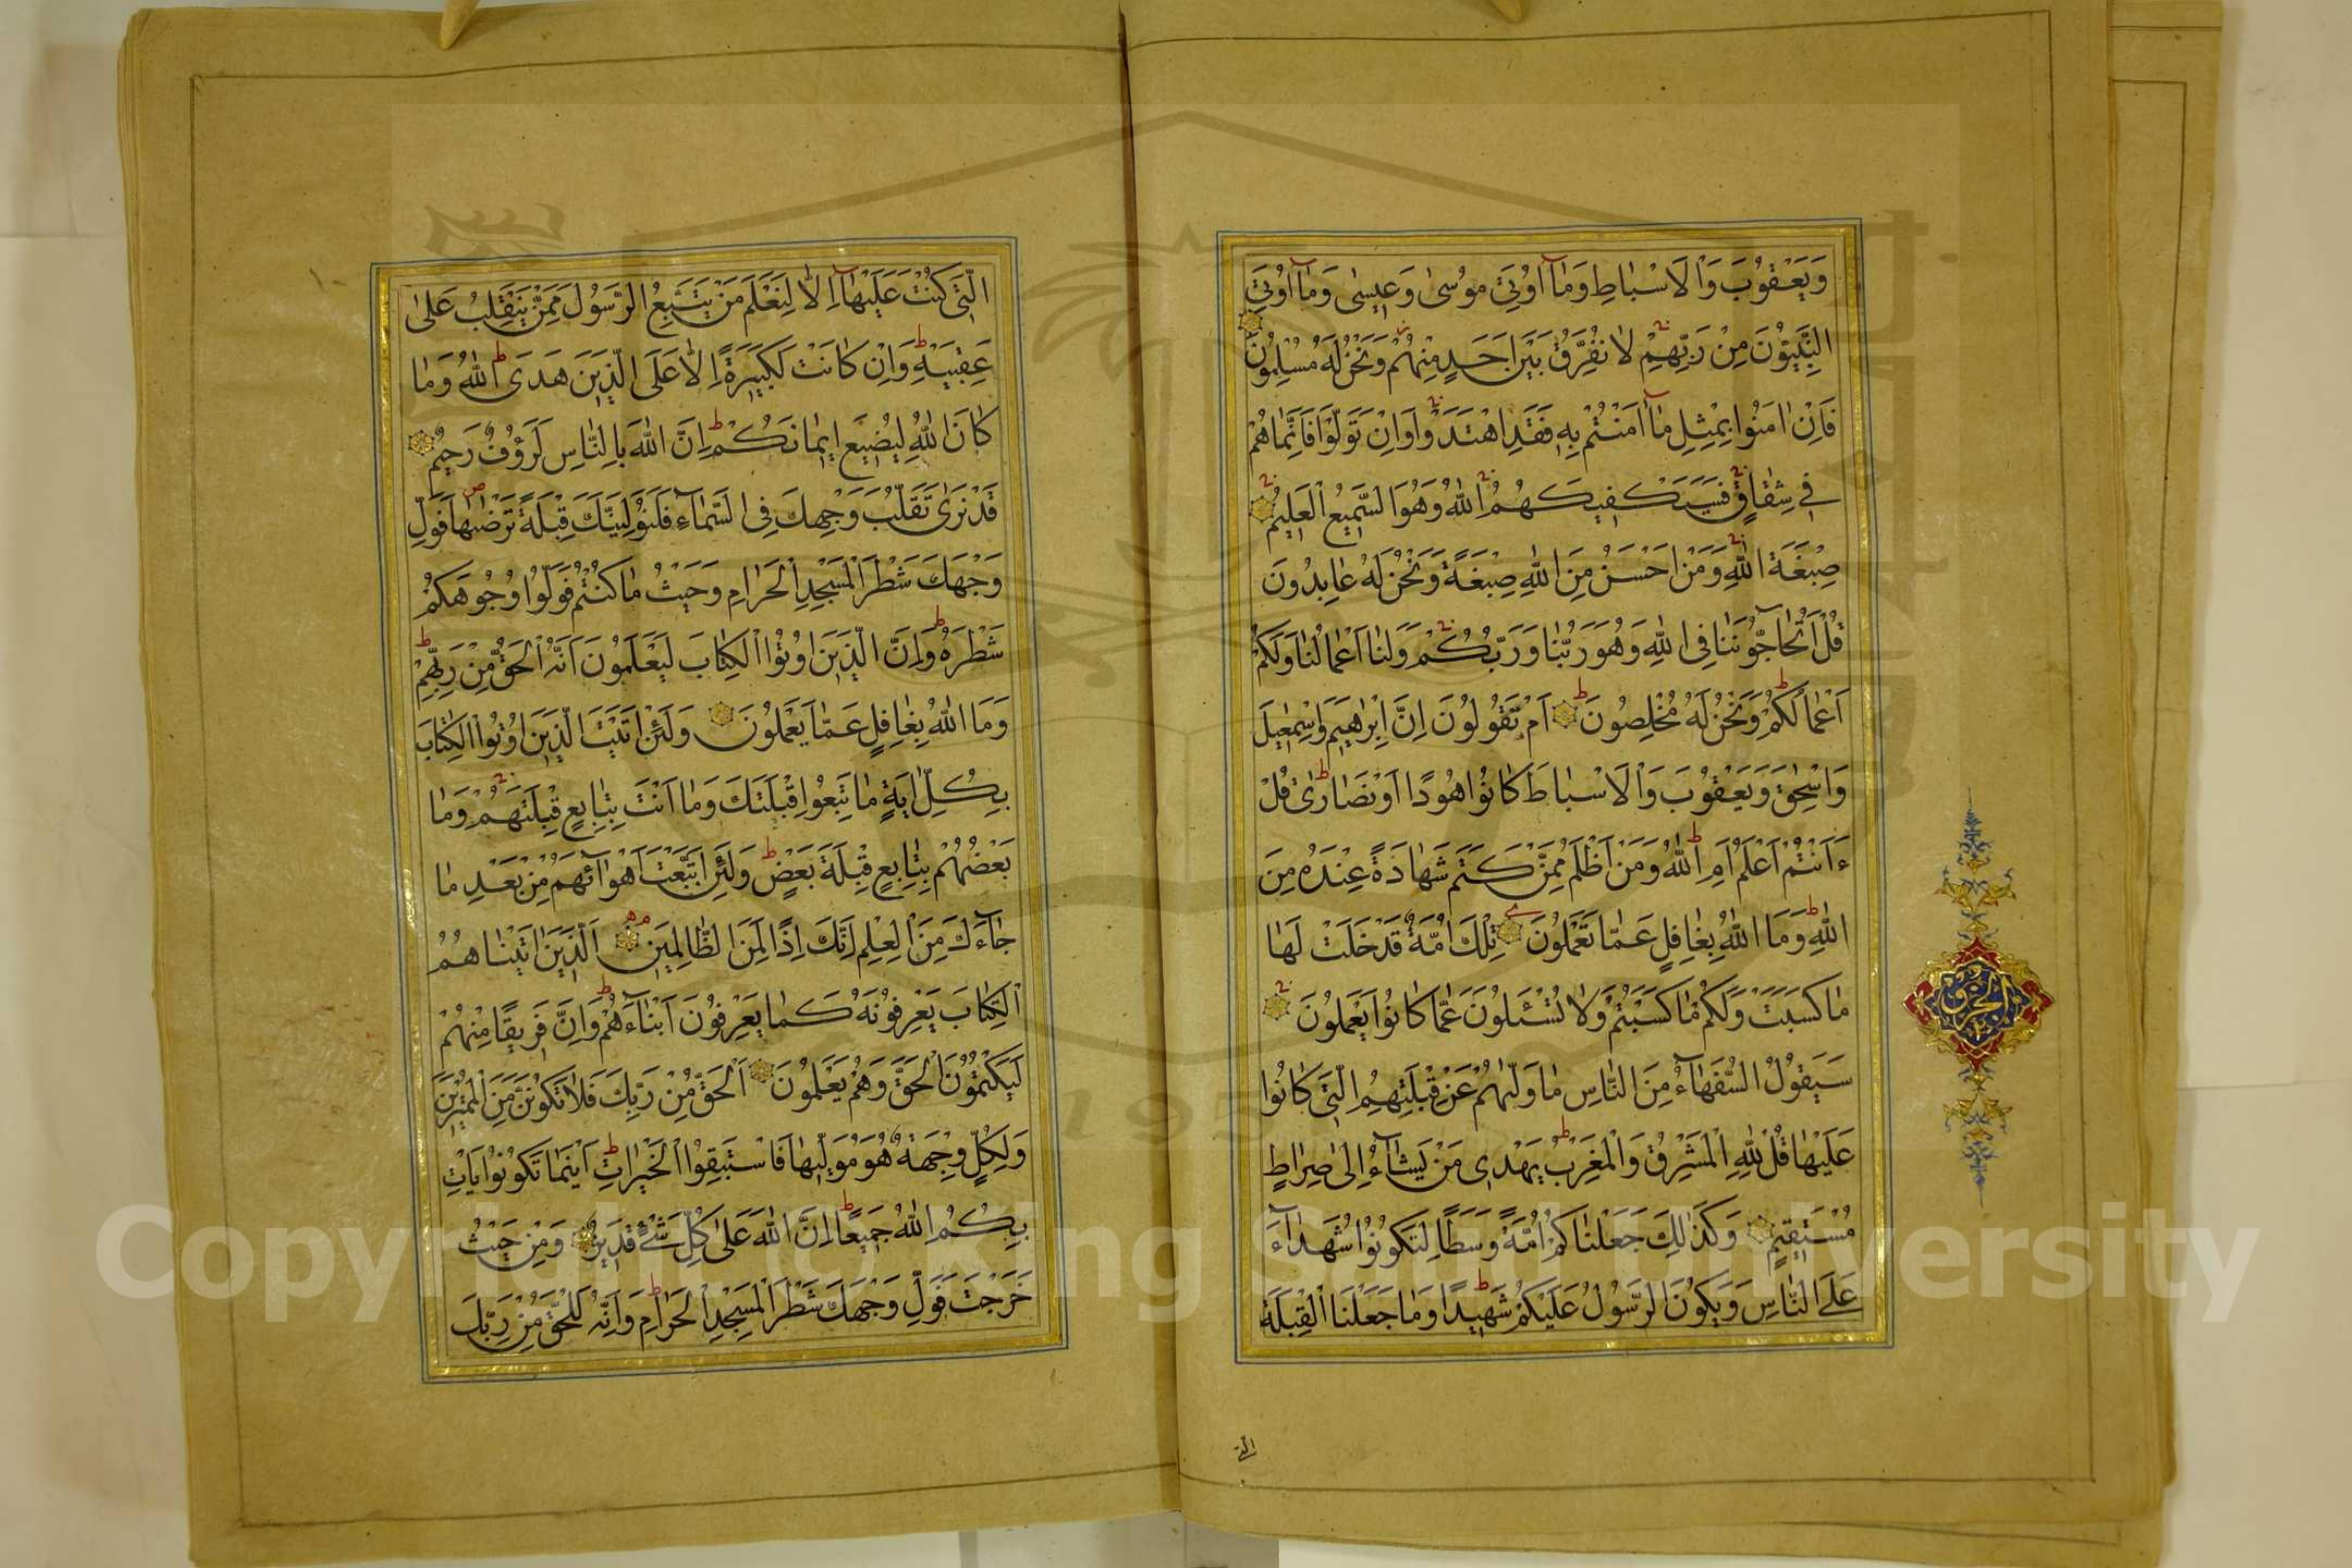 وَيَعْقُوبَ وَالْاَسْبَاطِ وَمَآ اُوتِىَ مُوسٰى وَعِيسٰى وَمَآ اُوتِىَ
النَّبِيُّونَ مِنْ رَبِّهِمْ لَا نُفَرِّقُ بَيْنَ اَحَدٍ مِنْهُمْ وَنَحْنُ لَهُ مُسْلِمُونَ
فَاِنْ اٰمَنُوا بِمِثْلِ مَآ اٰمَنْتُمْ بِهِ فَقَدِ اهْتَدَوْا وَاِنْ تَوَلَّوْا فَاِنَّمَا هُمْ
فِى شِقَاقٍ فَسَيَكْفِيكَهُمُ اللّٰهُ وَهُوَ السَّمِيعُ الْعَلِيمُ
صِبْغَةَ اللّٰهِ وَمَنْ اَحْسَنُ مِنَ اللّٰهِ صِبْغَةً وَنَحْنُ لَهُ عَابِدُونَ
قُلْ اَتُحَآجُّونَنَا فِى اللّٰهِ وَهُوَ رَبُّنَا وَرَبُّكُمْ وَلَنَا اَعْمَالُنَا وَلَكُمْ
اَعْمَالُكُمْ وَنَحْنُ لَهُ مُخْلِصُونَ اَمْ تَقُولُونَ اِنَّ اِبْرٰهِيمَ وَاِسْمٰعِيلَ
وَاِسْحٰقَ وَيَعْقُوبَ وَالْاَسْبَاطَ كَانُوا هُودًا اَوْ نَصَارٰى قُلْ
ءَاَنْتُمْ اَعْلَمُ اَمِ اللّٰهُ وَمَنْ اَظْلَمُ مِمَّنْ كَتَمَ شَهَادَةً عِنْدَهُ مِنَ
اللّٰهِ وَمَا اللّٰهُ بِغَافِلٍ عَمَّا تَعْمَلُونَ تِلْكَ اُمَّةٌ قَدْ خَلَتْ لَهَا
مَا كَسَبَتْ وَلَكُمْ مَا كَسَبْتُمْ وَلَا تُسْـَٔلُونَ عَمَّا كَانُوا يَعْمَلُونَ
سَيَقُولُ السُّفَهَآءُ مِنَ النَّاسِ مَا وَلّٰيهُمْ عَنْ قِبْلَتِهِمُ الَّتِى كَانُوا
عَلَيْهَا قُلْ لِلّٰهِ الْمَشْرِقُ وَالْمَغْرِبُ يَهْدِى مَنْ يَشَآءُ اِلٰى صِرَاطٍ
مُسْتَقِيمٍ وَكَذٰلِكَ جَعَلْنَاكُمْ اُمَّةً وَسَطًا لِتَكُونُوا شُهَدَآءَ
عَلَى النَّاسِ وَيَكُونَ الرَّسُولُ عَلَيْكُمْ شَهِيدًا وَمَا جَعَلْنَا الْقِبْلَةَ
الَّتِى كُنْتَ عَلَيْهَآ اِلَّا لِنَعْلَمَ مَنْ يَتَّبِعُ الرَّسُولَ مِمَّنْ يَنْقَلِبُ عَلٰى
عَقِبَيْهِ وَاِنْ كَانَتْ لَكَبِيرَةً اِلَّا عَلَى الَّذِينَ هَدَى اللّٰهُ وَمَا
كَانَ اللّٰهُ لِيُضِيعَ اِيمَانَكُمْ اِنَّ اللّٰهَ بِالنَّاسِ لَرَؤُفٌ رَحِيمٌ
قَدْ نَرٰى تَقَلُّبَ وَجْهِكَ فِى السَّمَآءِ فَلَنُوَلِّيَنَّكَ قِبْلَةً تَرْضٰيهَا فَوَلِّ
وَجْهَكَ شَطْرَ الْمَسْجِدِ الْحَرَامِ وَحَيْثُ مَا كُنْتُمْ فَوَلُّوا وُجُوهَكُمْ
شَطْرَهُ وَاِنَّ الَّذِينَ اُوتُوا الْكِتَابَ لَيَعْلَمُونَ اَنَّهُ الْحَقُّ مِنْ رَبِّهِمْ
وَمَا اللّٰهُ بِغَافِلٍ عَمَّا يَعْمَلُونَ وَلَئِنْ اَتَيْتَ الَّذِينَ اُوتُوا الْكِتَابَ
بِكُلِّ اٰيَةٍ مَا تَبِعُوا قِبْلَتَكَ وَمَا اَنْتَ بِتَابِعٍ قِبْلَتَهُمْ وَمَا
بَعْضُهُمْ بِتَابِعٍ قِبْلَةَ بَعْضٍ وَلَئِنِ اتَّبَعْتَ اَهْوَآئَهُمْ مِنْ بَعْدِ مَا
جَآءَكَ مِنَ الْعِلْمِ اِنَّكَ اِذًا لَمِنَ الظَّالِمِينَ اَلَّذِينَ اٰتَيْنَاهُمُ
الْكِتَابَ يَعْرِفُونَهُ كَمَا يَعْرِفُونَ اَبْنَآءَهُمْ وَاِنَّ فَرِيقًا مِنْهُمْ
لَيَكْتُمُونَ الْحَقَّ وَهُمْ يَعْلَمُونَ اَلْحَقُّ مِنْ رَبِّكَ فَلَا تَكُونَنَّ مِنَ الْمُمْتَرِينَ
وَلِكُلٍّ وِجْهَةٌ هُوَ مُوَلِّيهَا فَاسْتَبِقُوا الْخَيْرَاتِ اَيْنَمَا تَكُونُوا يَاْتِ
بِكُمُ اللّٰهُ جَمِيعًا اِنَّ اللّٰهَ عَلٰى كُلِّ شَىْءٍ قَدِيرٌ وَمِنْ حَيْثُ
خَرَجْتَ فَوَلِّ وَجْهَكَ شَطْرَ الْمَسْجِدِ الْحَرَامِ وَاِنَّهُ لَلْحَقُّ مِنْ رَبِّكَ
الجزو
التى
Copyright © King Saud University
1957